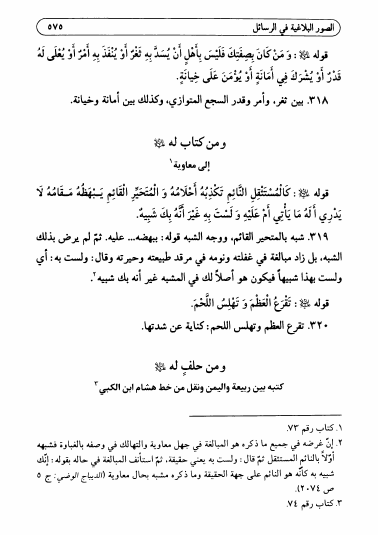 الصور البلاغية في الرسائل ٥٧٥
قوله ﷺ: وَمَنْ كَانَ بِصِفَتِكَ فَلَيْسَ بِأَهْلٍ أَنْ يُسَدَّ بِهِ ثَغْرٌ أَوْ يُنْفَذَ بِهِ أَمْرٌ أَوْ يُعْلَى لَهُ
قَدْرٌ أَوْ يُشْرَكَ فِي أَمَانَةٍ أَوْ يُؤْمَنَ عَلَى خِيَانَةٍ.
٣١٨. بين ثغر، وأمر وقدر السجع المتوازي، وكذلك بين أمانة وخيانة.
ومن كتاب له ﷺ
إلى معاوية١
قوله ﷺ: كَالْمُسْتَثْقِلِ النَّائِمِ تَكْذِبُهُ أَحْلَامُهُ وَ الْمُتَحَيِّرِ الْقَائِمِ يَبْهَظُهُ مَقَامُهُ لَا
يَدْرِي أَ لَهُ مَا يَأْتِي أَمْ عَلَيْهِ وَ لَسْتَ بِهِ غَيْرَ أَنَّهُ بِكَ شَبِيهٌ.
٣١٩. شبه بالمتحير القائم، ووجه الشبه قوله: يبهضه... عليه. ثمّ لم يرض بذلك
الشبه، بل زاد مبالغة في غفلته ونومه في مرقد طبيعته وحيرته وقال: ولست به: أي
ولست بهذا شبيهاً فيكون هو أصلاً لك في المشبه غير أنه بك شبيه٢.
قوله ﷺ: تَقْرَعُ الْعَظْمَ وَ تَهْلِسُ اللَّحْمَ.
٣٢٠. تقرع العظم وتهلس اللحم: كناية عن شدتها.
ومن حلفٍ له ﷺ
كتبه بين ربيعة واليمن ونقل من خط هشام ابن الكلبي٣
١. كتاب رقم ٧٣.
٢. إنّ غرضه في جميع ما ذكره هو المبالغة في جهل معاوية والتهالك في وصفه بالغباوة فشبهه
أوّلاً بالنائم المستثقل ثمّ قال: ولست به يعني حقيقة، ثمّ استأنف المبالغة في حاله بقوله: إنّك
شبيه به كأنّه هو النائم على جهة الحقيقة وما ذكره مشبه بحال معاوية (الديباج الوضي: ج ٥
ص ٢٠٧٤).
٣. كتاب رقم ٧٤.